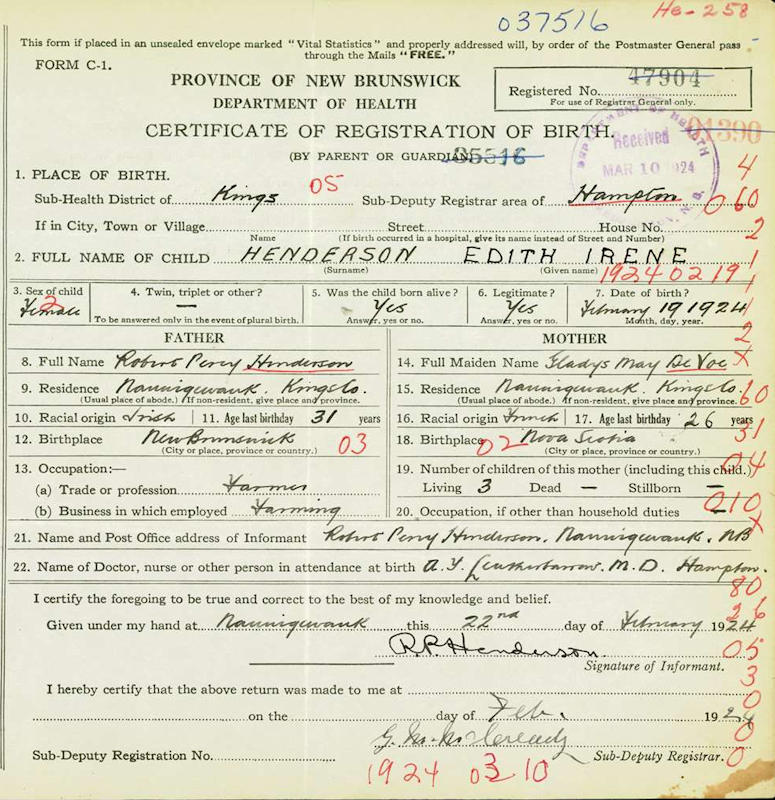 037516 He-258
This form if placed in an unsealed envelope marked "Vital Statistics" and properly addressed will, by order of the Postmaster General pass
through the Mails "FREE."
FORM C-1.
PROVINCE OF NEW BRUNSWICK
DEPARTMENT OF HEALTH
Registered No. 47904
For use of Registrar General only.
CERTIFICATE OF REGISTRATION OF BIRTH.
01390
(BY PARENT OR GUARDIAN) 35516
DEPARTMENT OF HEALTH
Received
MAR 10 1924
N. B.
4
1. PLACE OF BIRTH.
Sub-Health District of Kings 05 Sub-Deputy Registrar area of Hampton 060
If in City, Town or Village Street House No. 2
Name (If birth occurred in a hospital, give its name instead of Street and Number)
2. FULL NAME OF CHILD HENDERSON EDITH IRENE 1
(Surname) (Given name) 1924 02 19 1
3. Sex of child 4. Twin, triplet or other? 5. Was the child born alive? 6. Legitimate? 7. Date of birth?
Female 2 — Yes Yes February 19 1924 1
To be answered only in the event of plural birth. Answer, yes or no. Answer, yes or no. Month, day, year.
FATHER MOTHER 2
8. Full Name Robert Percy Henderson 14. Full Maiden Name Gladys May De Voe X
9. Residence Nauwigewauk, Kings Co. 15. Residence Nauwigewauk, Kings Co. 60
(Usual place of abode.) If non-resident, give place and province. (Usual place of abode.) If non-resident, give place and province.
10. Racial origin Irish 11. Age last birthday 31 years 16. Racial origin French 17. Age last birthday 26 years
31
12. Birthplace New Brunswick 03 18. Birthplace 02 Nova Scotia
(City or place, province or country.) (City or place, province or country.)
13. Occupation:— 19. Number of children of this mother (including this child.) 04
(a) Trade or profession Farmer Living 3 Dead — Stillborn —
(b) Business in which employed Farming 20. Occupation, if other than household duties — 010
X
21. Name and Post Office address of Informant Robert Percy Henderson, Nauwigewauk, NB
22. Name of Doctor, nurse or other person in attendance at birth A. Y. Leatherbarrow. M.D. Hampton.
80
I certify the foregoing to be true and correct to the best of my knowledge and belief.
26
Given under my hand at Nauwigewauk this 22nd day of February 1924
R.P. Henderson 05
Signature of Informant.
3
I hereby certify that the above return was made to me at
0
on the day of Feb. 1924
0
Sub-Deputy Registration No. Sub-Deputy Registrar. 0
1924 03 10